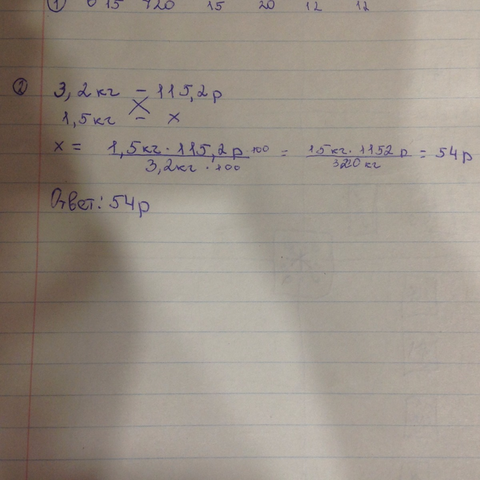 ① 6 15 120 15 20 12 12
② 3,2кг – 115,2р
1,5кг – x
x = 1,5кг · 115,2р 100 / 3,2кг · 100 = 15кг · 1152р / 320кг = 54р
Ответ: 54р